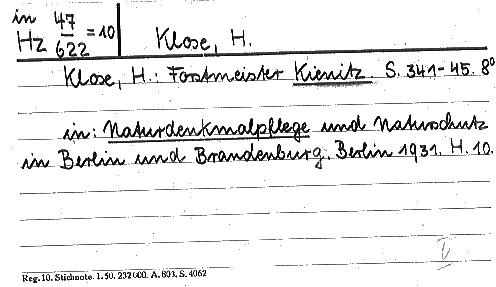 in 47
Hz 622 = 10
Klose, H.
Klose, H.: Forstmeister Kienitz. S. 341-45. 8°
in: Naturdenkmalpflege und Naturschutz
in Berlin und Brandenburg. Berlin 1931. H. 10.
Reg. 10. Stichnote. 1. 50. 232000. A. 803. S. 4062